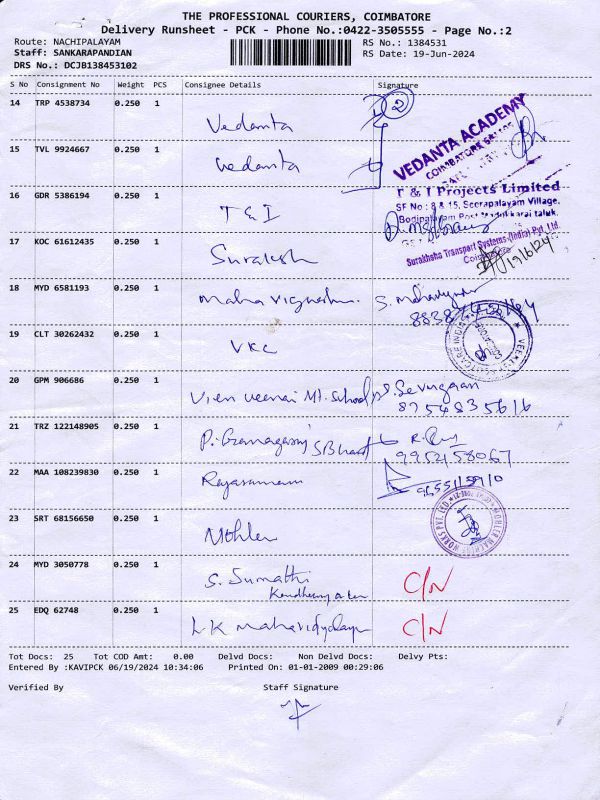 THE PROFESSIONAL COURIERS, COIMBATORE
Delivery Runsheet - PCK - Phone No.:0422-3505555 - Page No.:2
Route: NACHIPALAYAM
RS No.: 1384531
Staff: SANKARAPANDIAN
RS Date: 19-Jun-2024
DRS No.: DCJB138453102
S No Consignment No Weight PCS Consignee Details Signature
14 TRP 4538734 0.250 1
Vedanta
2
VEDANTA ACADEMY
15 TVL 9924667 0.250 1
Vedanta
16 GDR 5386194 0.250 1
T & I
T & I Projects Limited
SF No : 8 & 15, Seerapalayam Village,
17 KOC 61612435 0.250 1
Suraksh
Surakshaa Transport Systems (India) Pvt. Ltd.
19/6/24
18 MYD 6581193 0.250 1
19 CLT 30262432 0.250 1
VKC
20 GPM 906686 0.250 1
8754835616
21 TRZ 122148905 0.250 1
9952158067
22 MAA 108239830 0.250 1
23 SRT 68156650 0.250 1
Mohler
24 MYD 3050778 0.250 1
S. Sumathi
C/N
25 EDQ 62748 0.250 1
C/N
Tot Docs: 25 Tot COD Amt: 0.00 Delvd Docs: Non Delvd Docs: Delvy Pts:
Entered By :KAVIPCK 06/19/2024 10:34:06 Printed On: 01-01-2009 00:29:06
Verified By Staff Signature